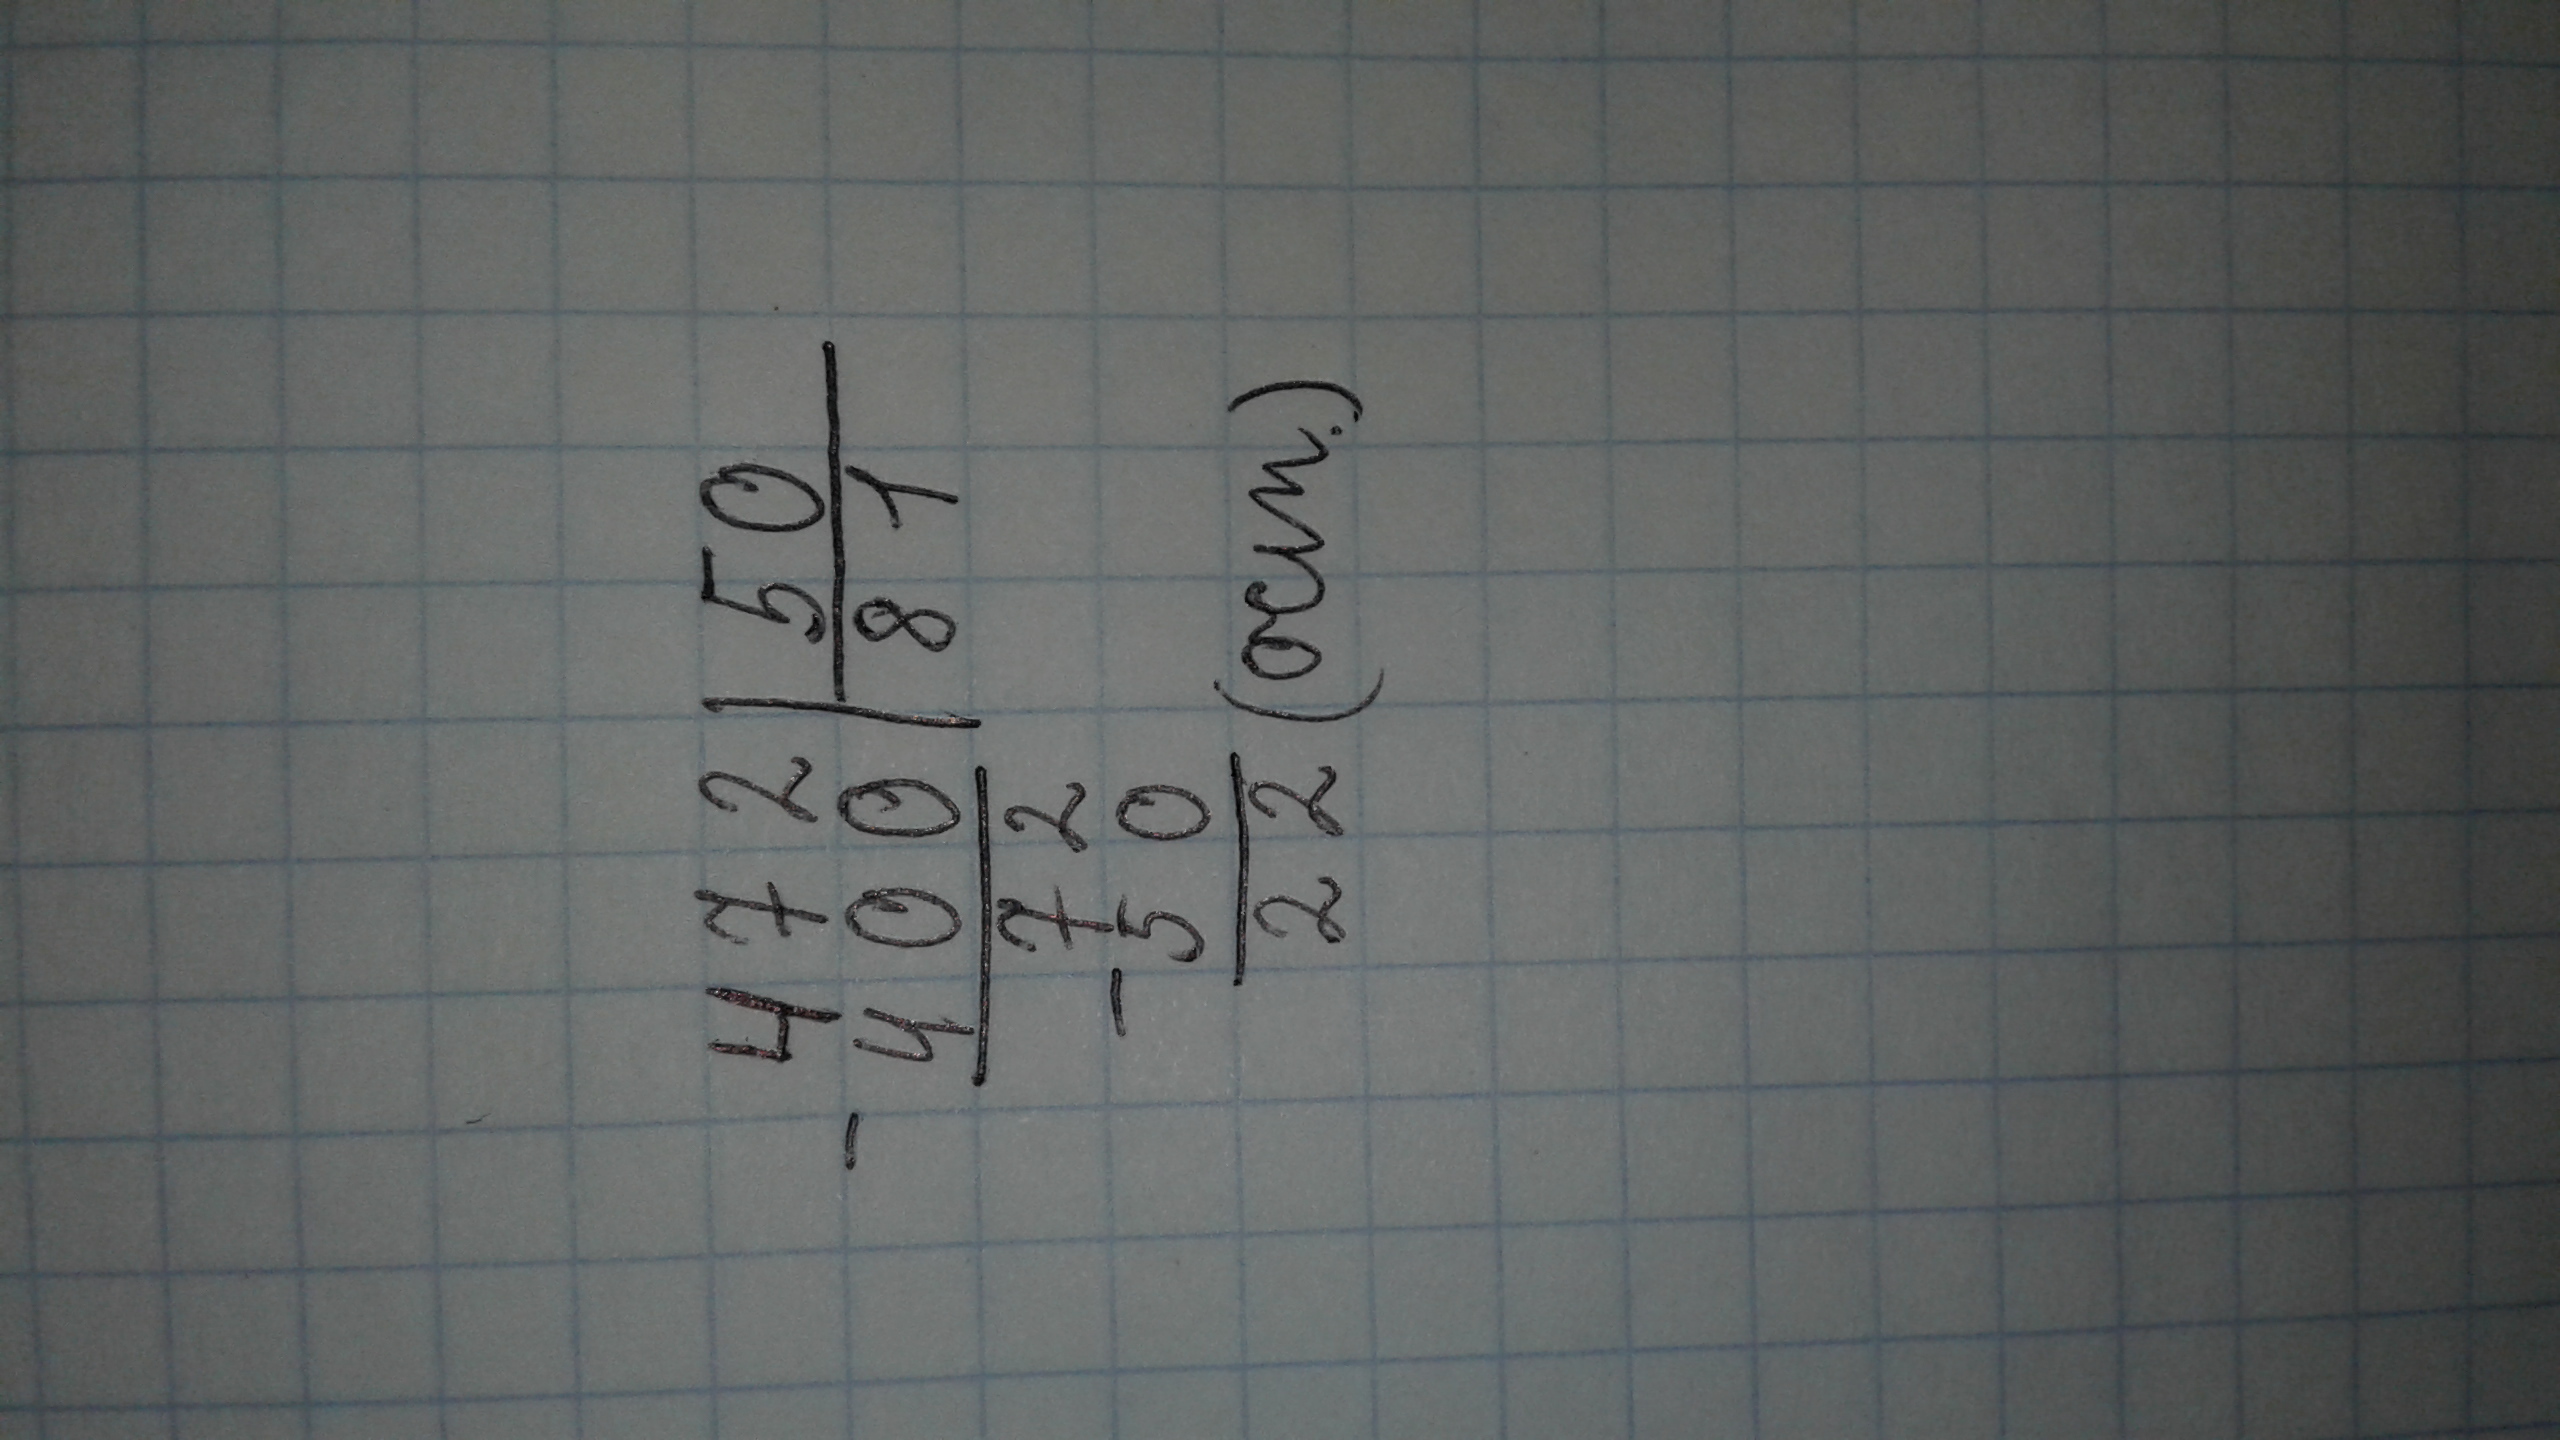 472 | 50
- 400 | 81
72
- 50
22 (ост.)